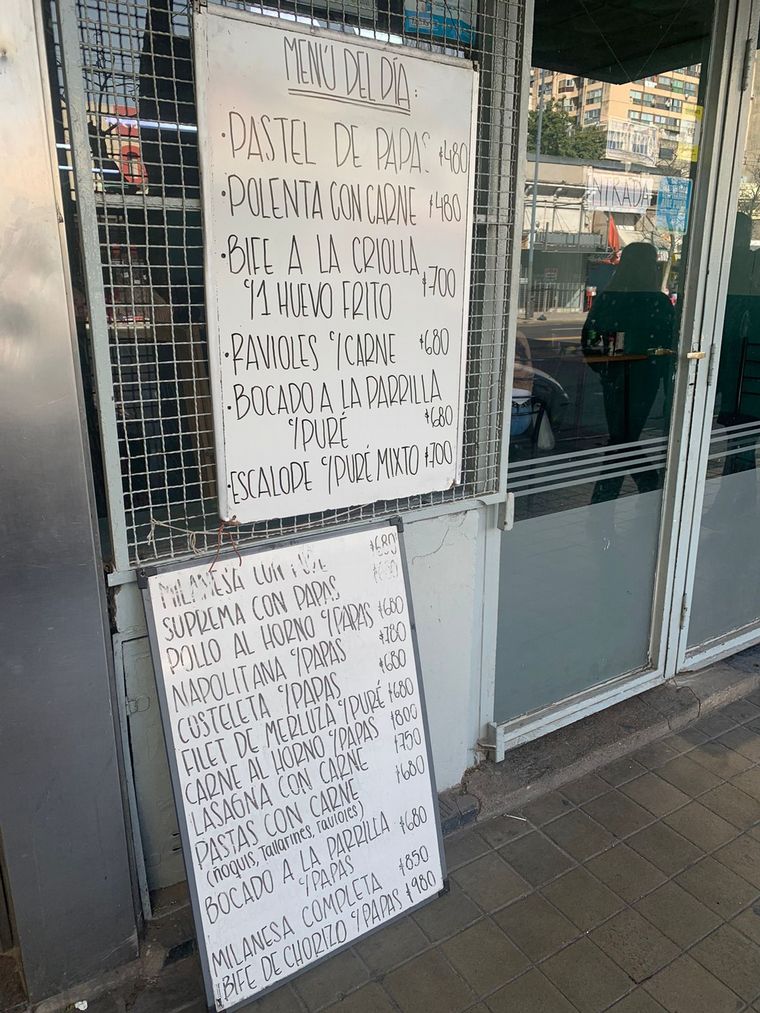 MENÚ DEL DÍA:
• PASTEL DE PAPAS $480
• POLENTA CON CARNE $480
• BIFE A LA CRIOLLA
C/1 HUEVO FRITO $700
• RAVIOLES C/CARNE $680
• BOCADO A LA PARRILLA
C/PURÉ $680
• ESCALOPE C/PURÉ MIXTO $700
MILANESA CON $680
SUPREMA CON PAPAS
POLLO AL HORNO C/PAPAS $680
NAPOLITANA C/PAPAS $780
COSTELETA C/PAPAS $680
FILET DE MERLUZA C/PURÉ $680
CARNE AL HORNO C/PAPAS $800
LASAGNA CON CARNE $750
PASTAS CON CARNE $680
(ñoquis, Tallarines, ravioles)
BOCADO A LA PARRILLA $680
C/PAPAS
MILANESA COMPLETA $850
BIFE DE CHORIZO C/PAPAS $980